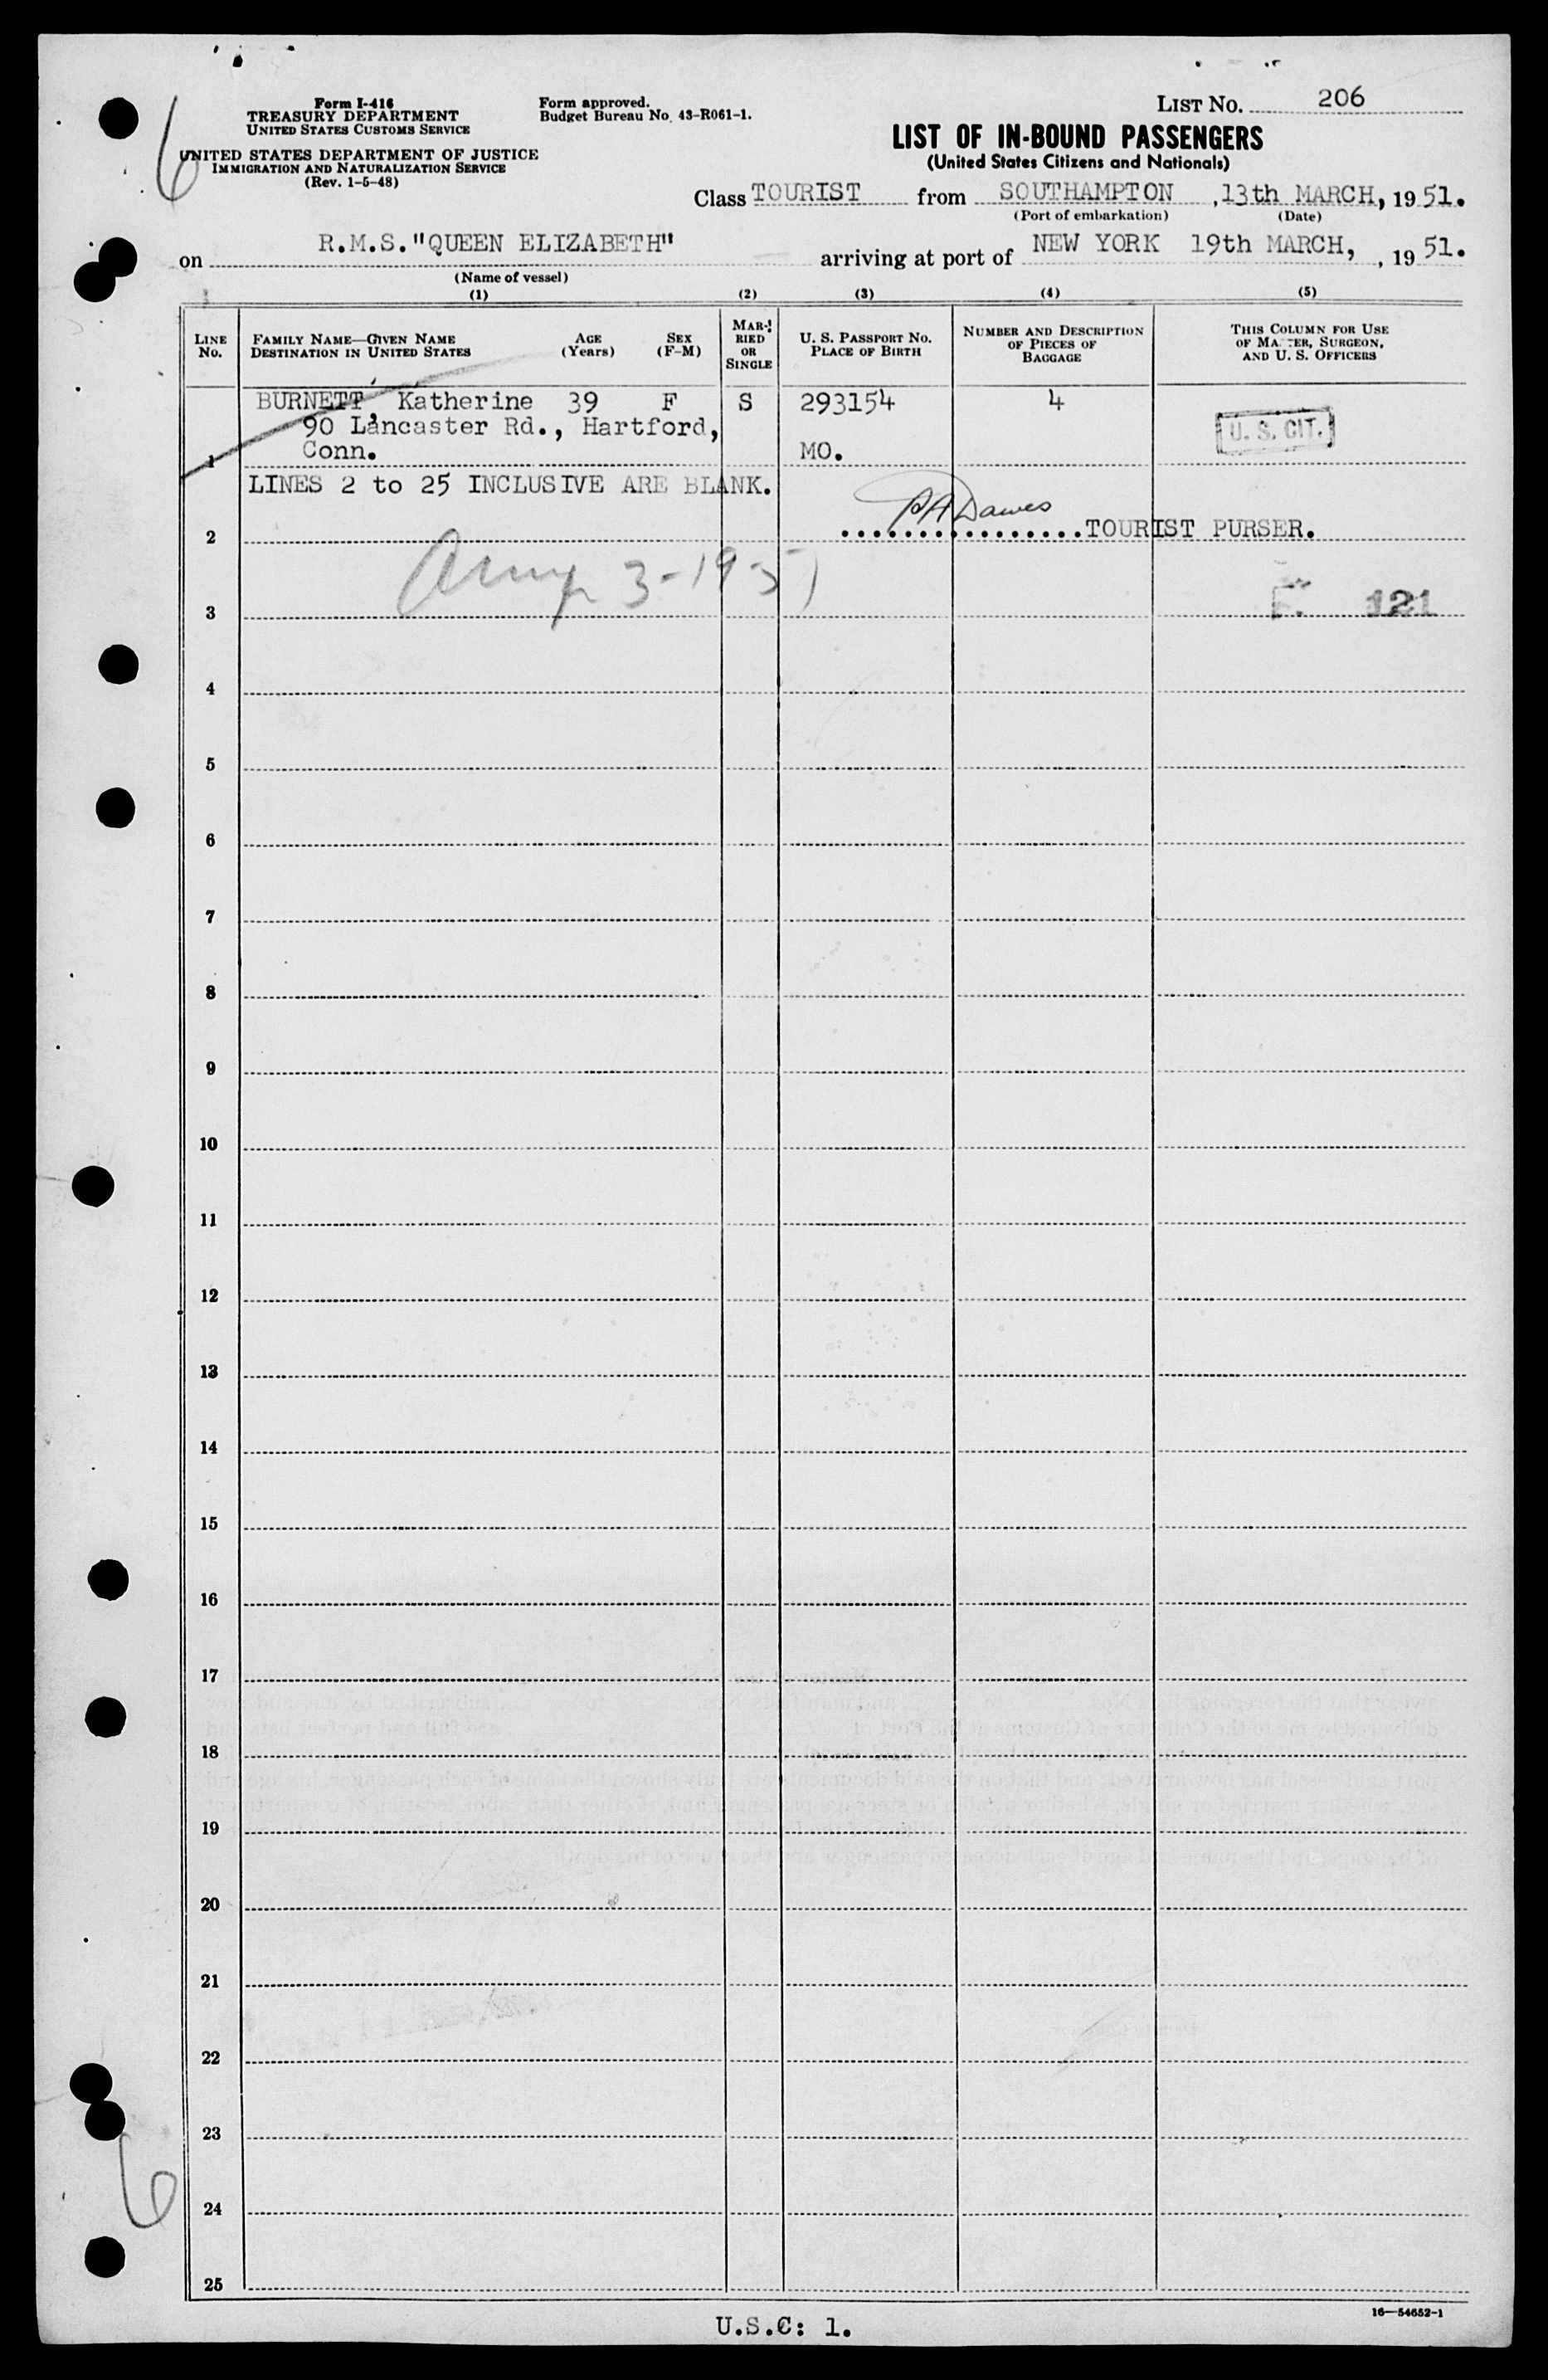 Form I-416
TREASURY DEPARTMENT
UNITED STATES CUSTOMS SERVICE
UNITED STATES DEPARTMENT OF JUSTICE
IMMIGRATION AND NATURALIZATION SERVICE
(Rev. 1-5-48)
Form approved.
Budget Bureau No. 43-R061-1.
LIST NO. 206
LIST OF IN-BOUND PASSENGERS
(United States Citizens and Nationals)
6
Class TOURIST from SOUTHAMPTON , 13th MARCH, 19 51.
(Port of embarkation) (Date)
on R.M.S. "QUEEN ELIZABETH" arriving at port of NEW YORK 19th MARCH, , 19 51.
(Name of vessel)
(1) (2) (3) (4) (5)
LINE No. FAMILY NAME—GIVEN NAME DESTINATION IN UNITED STATES AGE (Years) SEX (F-M) MARRIED OR SINGLE U. S. PASSPORT NO. PLACE OF BIRTH NUMBER AND DESCRIPTION OF PIECES OF BAGGAGE THIS COLUMN FOR USE OF MASTER, SURGEON, AND U. S. OFFICERS
BURNETT, Katherine 39 F S 293154 4
90 Lancaster Rd., Hartford, U. S. CIT.
1 Conn. MO.
LINES 2 to 25 INCLUSIVE ARE BLANK.
2 Dawes TOURIST PURSER.
3-19-51
3 F. 121
4
5
6
7
8
9
10
11
12
13
14
15
16
17
18
19
20
21
22
23
6
24
25
16—54652-1
U.S.C: 1.